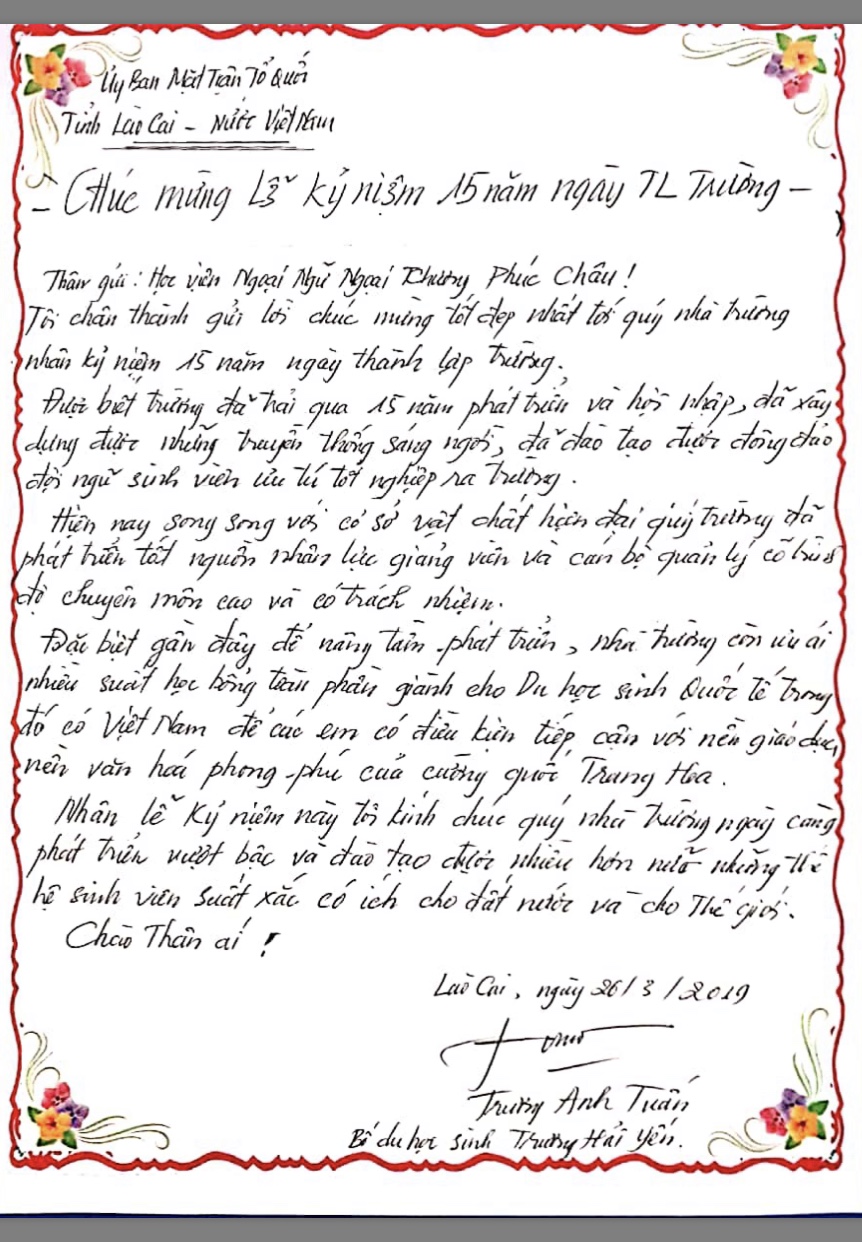 Ủy Ban Mặt Trận Tổ Quốc
Tỉnh Lào Cai - Nước Việt Nam
- Chúc mừng Lễ kỷ niệm 15 năm ngày TL Trường -
Thân gửi : Học viện Ngoại Ngữ Ngoại Thương Phúc Châu !
Tôi chân thành gửi lời chúc mừng tốt đẹp nhất tới quý nhà trường
nhân kỷ niệm 15 năm ngày thành lập trường.
Được biết trường đã trải qua 15 năm phát triển và hội nhập, đã xây
dựng được những truyền thống sáng ngời, đã đào tạo được đông đảo
đội ngũ sinh viên ưu tú tốt nghiệp ra trường.
Hiện nay song song với cơ sở vật chất hiện đại quý trường đã
phát triển tốt nguồn nhân lực giảng viên và cán bộ quản lý có trình
độ chuyên môn cao và có trách nhiệm.
Đặc biệt gần đây để nâng tầm phát triển, nhà trường còn ưu ái
nhiều suất học bổng toàn phần giành cho Du học sinh Quốc tế trong
đó có Việt Nam để các em có điều kiện tiếp cận với nền giáo dục,
nền văn hoá phong phú của cường quốc Trung Hoa.
Nhân lễ Kỷ niệm này tôi kính chúc quý nhà trường ngày càng
phát triển vượt bậc và đào tạo được nhiều hơn nữa những thế
hệ sinh viên suất xắc có ích cho đất nước và cho Thế giới.
Chào Thân ái !
Lào Cai, ngày 26/3/2019
Trương Anh Tuấn
Bố du học sinh Trương Hải Yến.